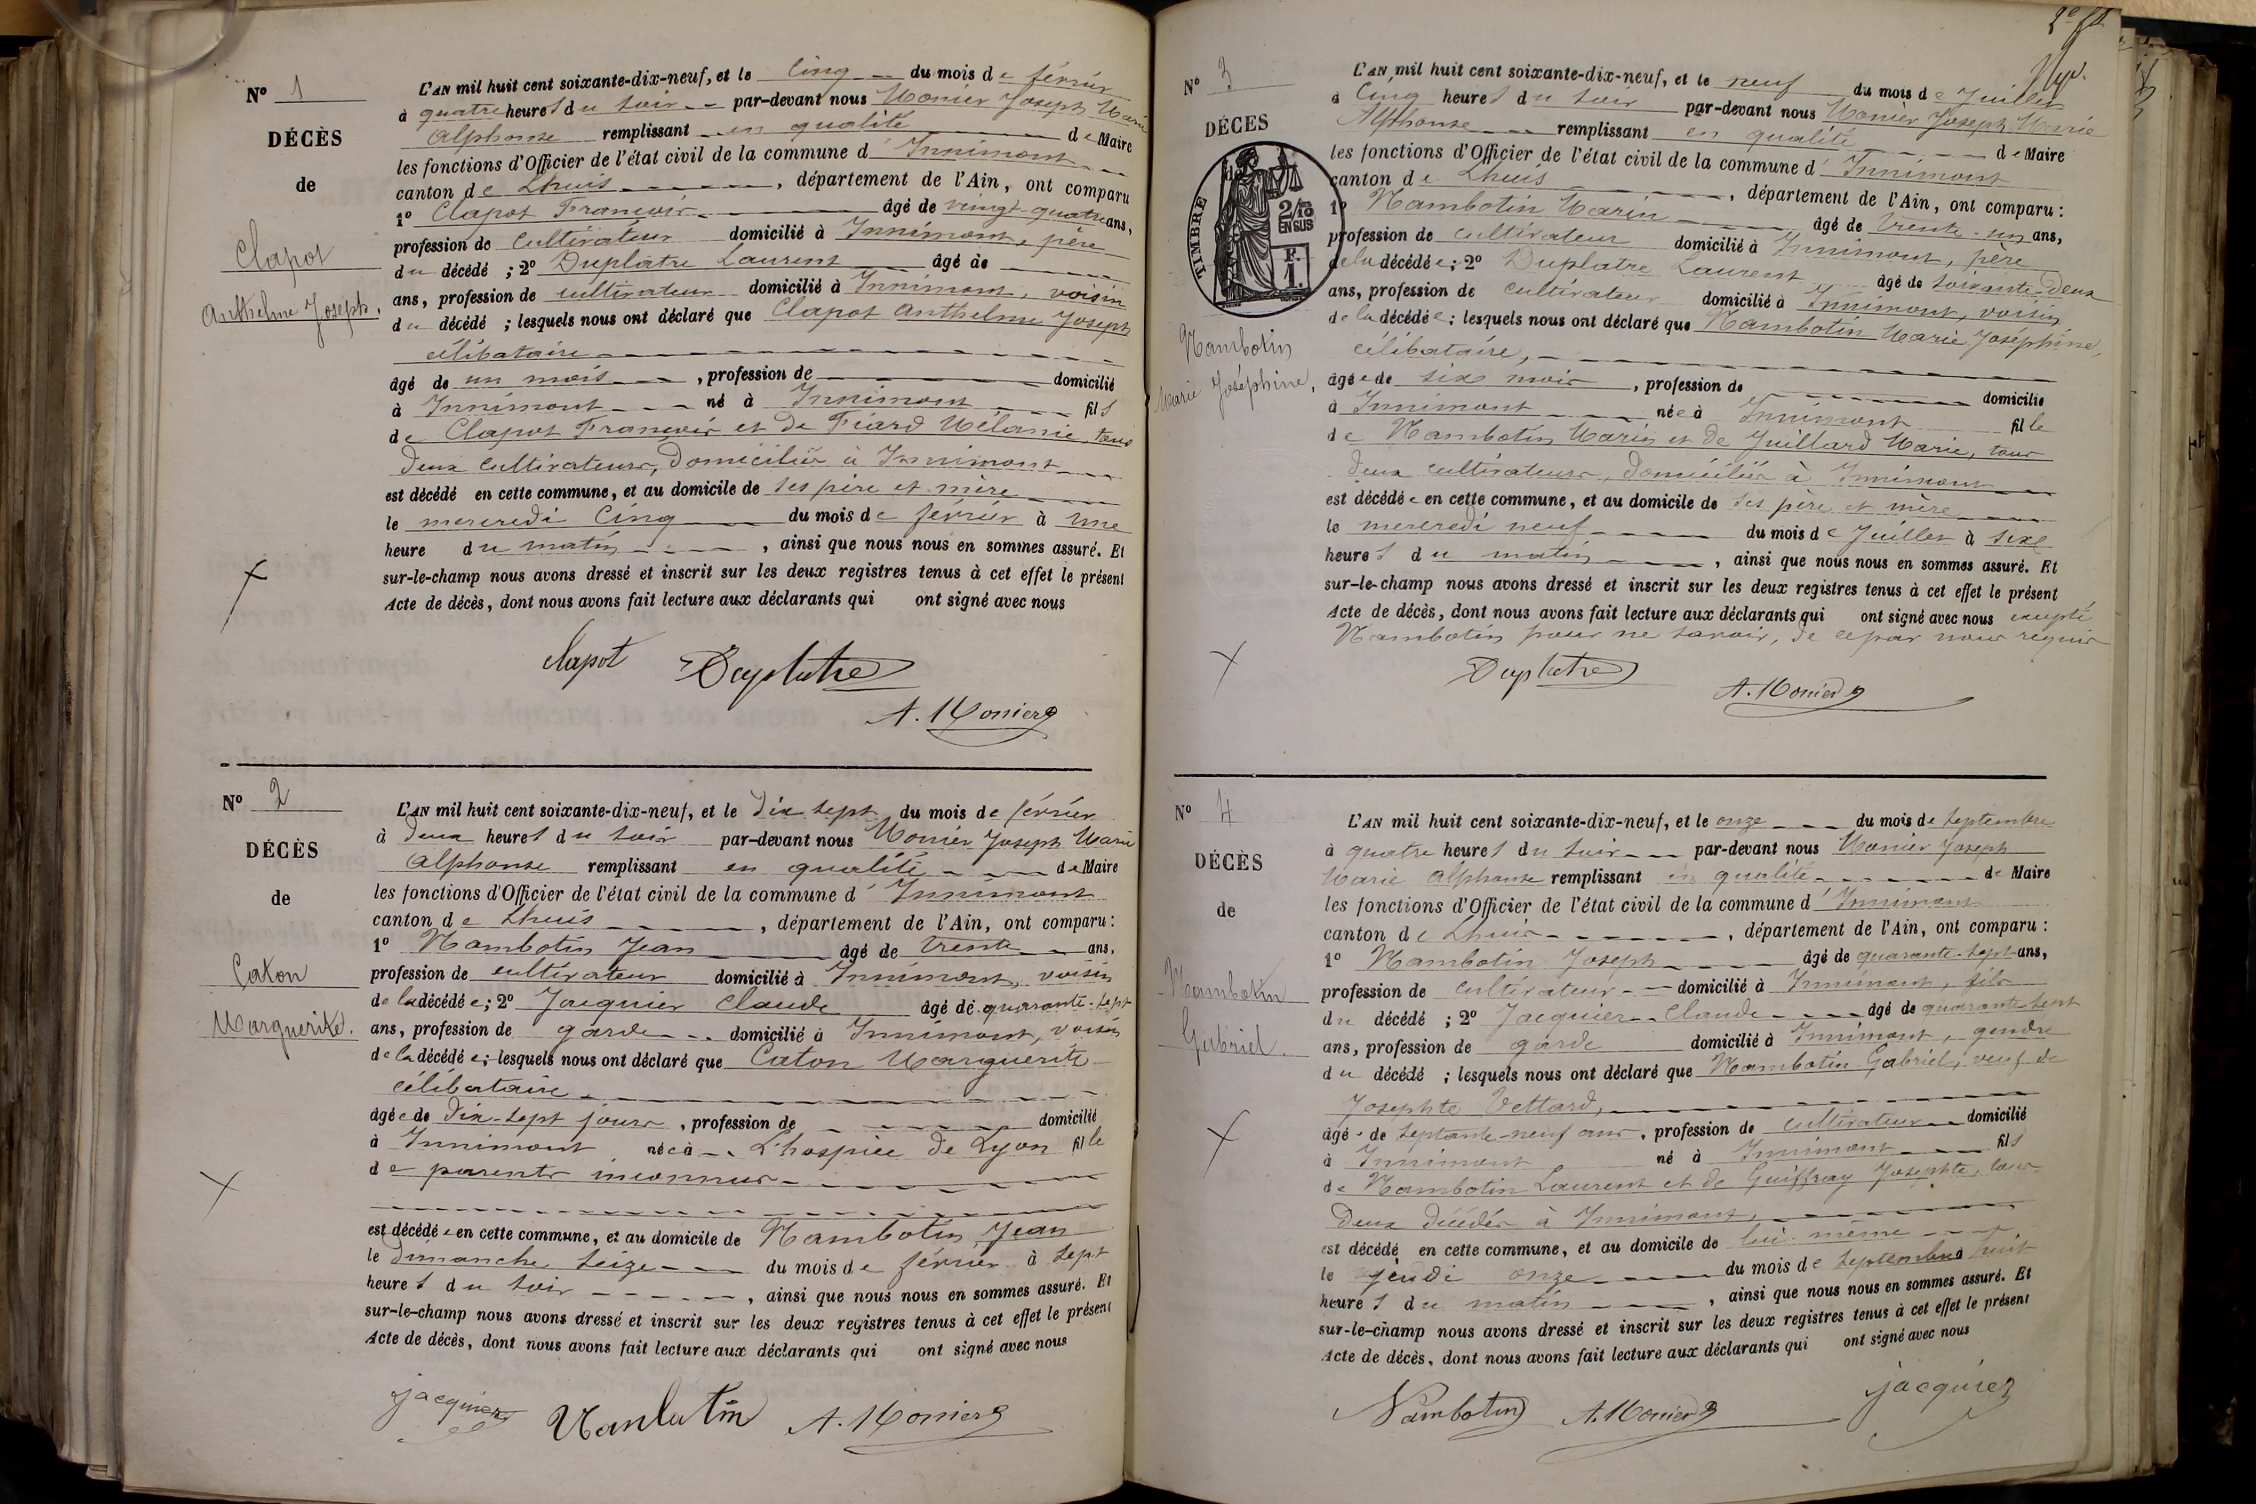 Nº 1
DÉCÈS
de
Clapot
Anthelme Joseph.
L'AN mil huit cent soixante-dix-neuf, et le cinq du mois de février
à quatre heures du soir par-devant nous Monier Joseph Marie
Alphonse remplissant en qualité de Maire
les fonctions d'Officier de l'état civil de la commune d'Innimont
canton de Lhuis, département de l'Ain, ont comparu
1º Clapot François âgé de vingt-quatre ans,
profession de cultivateur domicilié à Innimont, père
du décédé ; 2º Duplâtre Laurent âgé de
ans, profession de cultivateur domicilié à Innimont, voisin
du décédé ; lesquels nous ont déclaré que Clapot Anthelme Joseph
célibataire
âgé de un mois, profession de domicilié
à Innimont né à Innimont fils
de Clapot François et de Fiard Mélanie, tous
deux cultivateurs, domiciliés à Innimont
est décédé en cette commune, et au domicile de ses père et mère
le mercredi cinq du mois de février à une
heure du matin, ainsi que nous nous en sommes assuré. Et
sur-le-champ nous avons dressé et inscrit sur les deux registres tenus à cet effet le présent
Acte de décès, dont nous avons fait lecture aux déclarants qui ont signé avec nous
Clapot Duplatre
A. Monier
Nº 2
DÉCÈS
de
Caton
Marguerite.
L'AN mil huit cent soixante-dix-neuf, et le dix sept du mois de février
à deux heures du soir par-devant nous Monier Joseph Marie
Alphonse remplissant en qualité de Maire
les fonctions d'Officier de l'état civil de la commune d'Innimont
canton de Lhuis, département de l'Ain, ont comparu :
1º Nambotin Jean âgé de trente ans,
profession de cultivateur domicilié à Innimont, voisin
de la décédée ; 2º Jacquier Claude âgé de quarante-sept
ans, profession de garde domicilié à Innimont, voisin
de la décédée ; lesquels nous ont déclaré que Caton Marguerite
célibataire
âgée de dix-sept jours, profession de domicilié
à Innimont née à L'hospice de Lyon fille
de parents inconnus
est décédée en cette commune, et au domicile de Nambotin Jean
le dimanche seize du mois de février à sept
heures du soir, ainsi que nous nous en sommes assuré. Et
sur-le-champ nous avons dressé et inscrit sur les deux registres tenus à cet effet le présent
Acte de décès, dont nous avons fait lecture aux déclarants qui ont signé avec nous
jacquier Nanbotin A. Monier
2e
Nº 3
DÉCÈS
TIMBRE
2/10
EN SUS
F.
1.
Nambotin
Marie Joséphine,
L'AN mil huit cent soixante-dix-neuf, et le neuf du mois de Juillet
à cinq heures du soir par-devant nous Monier Joseph Marie
Alphonse remplissant en qualité de Maire
les fonctions d'Officier de l'état civil de la commune d'Innimont
canton de Lhuis, département de l'Ain, ont comparu :
1º Nambotin Marin âgé de trente-un ans,
profession de cultivateur domicilié à Innimont, père
de la décédée ; 2º Duplatre Laurent âgé de soixante-deux
ans, profession de cultivateur domicilié à Innimont, voisin
de la décédée ; lesquels nous ont déclaré que Nambotin Marie Joséphine,
célibataire,
âgée de six mois, profession de domicilié
à Innimont née à Innimont fille
de Nambotin Marin et de Juillard Marie, tous
deux cultivateurs, domiciliés à Innimont
est décédée en cette commune, et au domicile de ses père et mère
le mercredi neuf du mois de Juillet à six
heures du matin, ainsi que nous nous en sommes assuré. Et
sur-le-champ nous avons dressé et inscrit sur les deux registres tenus à cet effet le présent
Acte de décès, dont nous avons fait lecture aux déclarants qui ont signé avec nous excepté
Nambotin pour ne savoir, de ce par nous requis
Duplatre
A. Monier
Nº 4
DÉCÈS
de
Nambotin
Gabriel.
L'AN mil huit cent soixante-dix-neuf, et le onze du mois de Septembre
à quatre heures du soir par-devant nous Monier Joseph
Marie Alphonse remplissant en qualité de Maire
les fonctions d'Officier de l'état civil de la commune d'Innimont
canton de Lhuis, département de l'Ain, ont comparu :
1º Nambotin Joseph âgé de quarante-sept ans,
profession de cultivateur domicilié à Innimont, fils
du décédé ; 2º Jacquier Claude âgé de quarante-sept
ans, profession de garde domicilié à Innimont, gendre
du décédé ; lesquels nous ont déclaré que Nambotin Gabriel, veuf de
Josephte Vettard,
âgé de septante-neuf ans, profession de cultivateur domicilié
à Innimont né à Innimont fils
de Nambotin Laurent et de Guiffray Josephte, tous
deux décédés à Innimont,
est décédé en cette commune, et au domicile de lui-même
le jeudi onze du mois de Septembre huit
heures du matin, ainsi que nous nous en sommes assuré. Et
sur-le-champ nous avons dressé et inscrit sur les deux registres tenus à cet effet le présent
Acte de décès, dont nous avons fait lecture aux déclarants qui ont signé avec nous
Nambotin A. Monier jacquier